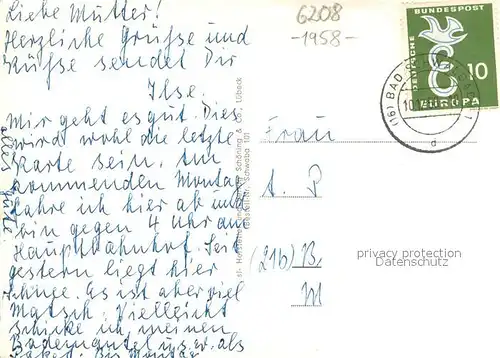 Liebe Mutter!
Herzliche Grüße und
Küsse sendet Dir
Ilse.
Mir geht es gut. Dies
wird wohl die letzte
Karte sein. Am
kommenden Montag
fahre ich hier ab und
bin gegen 4 Uhr am
Hauptbahnhof. Seit
gestern liegt hier
Schnee. Es ist aber viel
Matsch. Vielleicht
schicke ich meinen
Bademantel u.s.w. als
alles Gute
6208
-1958-
DEUTSCHE BUNDESPOST
10
EUROPA
(16) BAD
d
Schöning & Co., Lübeck
Schwaba 101
Frau
A. P
(21b) B
M
privacy protection
Datenschutz